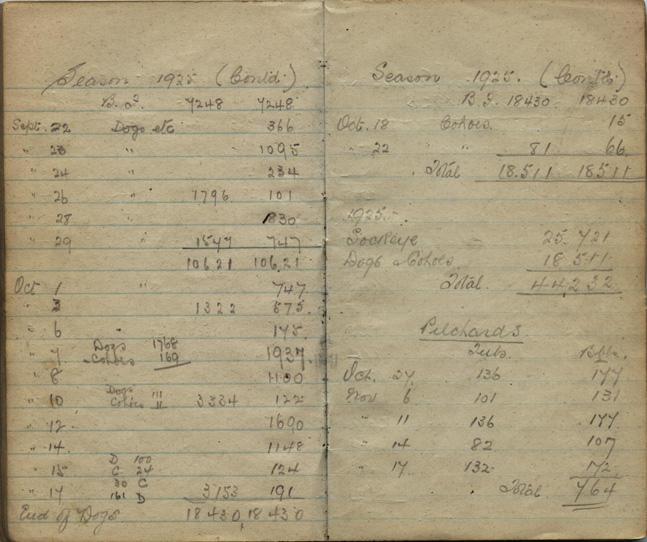 Season 1925 (Contd.)
B. F. 7248 7248
Sept. 22 Dogs etc 366
" 23 " 1095
" 24 " 234
" 26 " 1796 101
" 28 " 830
" 29 " 1547 747
10621 106,21
Oct 1 " 747
" 3 1322 575
" 6 " 175
" 7 Dogs 1768
Cohoes 169 1937
" 8 1100
" 10 Dogs 111
Cohoes 11 3334 122
" 12 1690
" 14 1148
D 100
" 15 C 24 124
30 C
" 17 161 D 3153 191
End of Dogs 18430 18430
Season 1925. (Cont'd.)
B. F. 18430 18430
Oct. 18 Cohoes. 15
" 22 " " 81 66
Total 18.511 18511
1925.
Sockeye 25 721
Dogs & Cohoes 18 511
Total. 44,232
Pilchards
Tubs. Bbls.
Oct. 27 136 177
Nov 6 101 131
" 11 136 177
" 14 82 107
" 17 132 172
Total 764